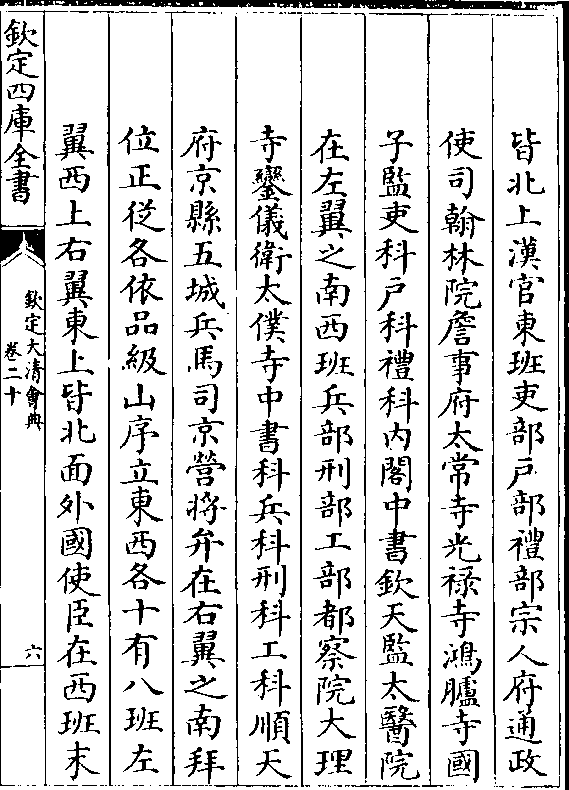 皆北上漢官東班吏部戶部禮部宗人府通政
使司翰林院詹事府太常寺光祿寺鴻臚寺國
子監吏科戶科禮科内閣中書欽天監太醫院
在左翼之南西班兵部刑部工部都察院大理
寺鑾儀衛太僕寺中書科兵科刑科工科順天
府京縣五城兵馬司京營將弁在右翼之南拜
位正從各依品級山序立東西各十有八班左
翼西上右翼東上皆北面外國使臣在西班末
欽定四庫全書
欽定大清會典
卷二十
六